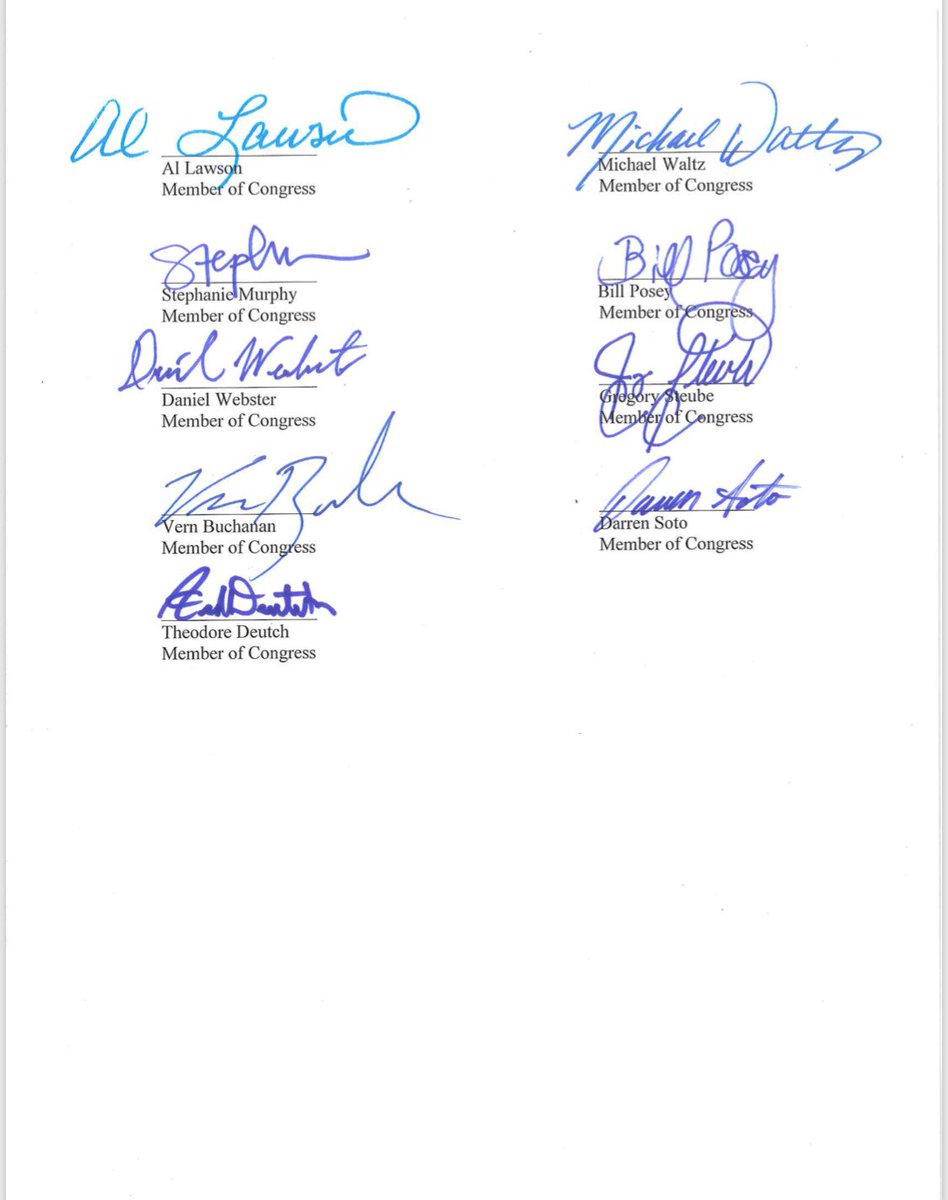 Al Lawson
Al Lawson
Member of Congress
Michael Waltz
Michael Waltz
Member of Congress
Stephanie Murphy
Member of Congress
Bill Posey
Bill Posey
Member of Congress
Daniel Webster
Member of Congress
Gregory Steube
Member of Congress
Vern Buchanan
Member of Congress
Darren Soto
Darren Soto
Member of Congress
Ted Deutch
Theodore Deutch
Member of Congress